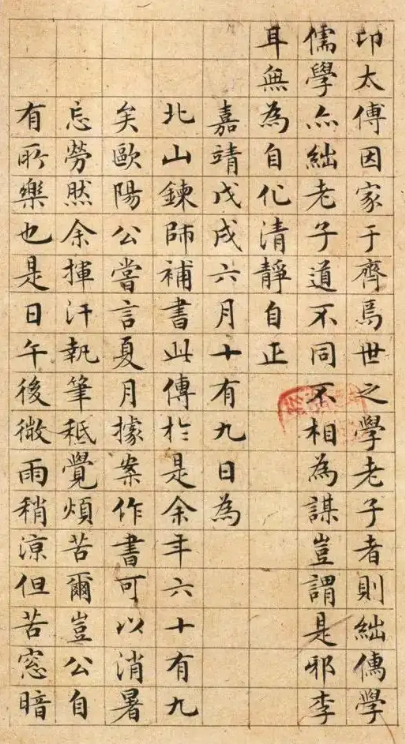 印太傅因家于齊焉世之學老子者則絀儒學
儒學亦絀老子道不同不相為謀豈謂是邪李
耳無為自化清靜自正
嘉靖戊戌六月十有九日為
北山鍊師補書此傳於是余年六十有九
矣歐陽公嘗言夏月據案作書可以消暑
忘勞然余揮汗執筆秖覺煩苦爾豈公自
有所樂也是日午後微雨稍涼但苦窓暗